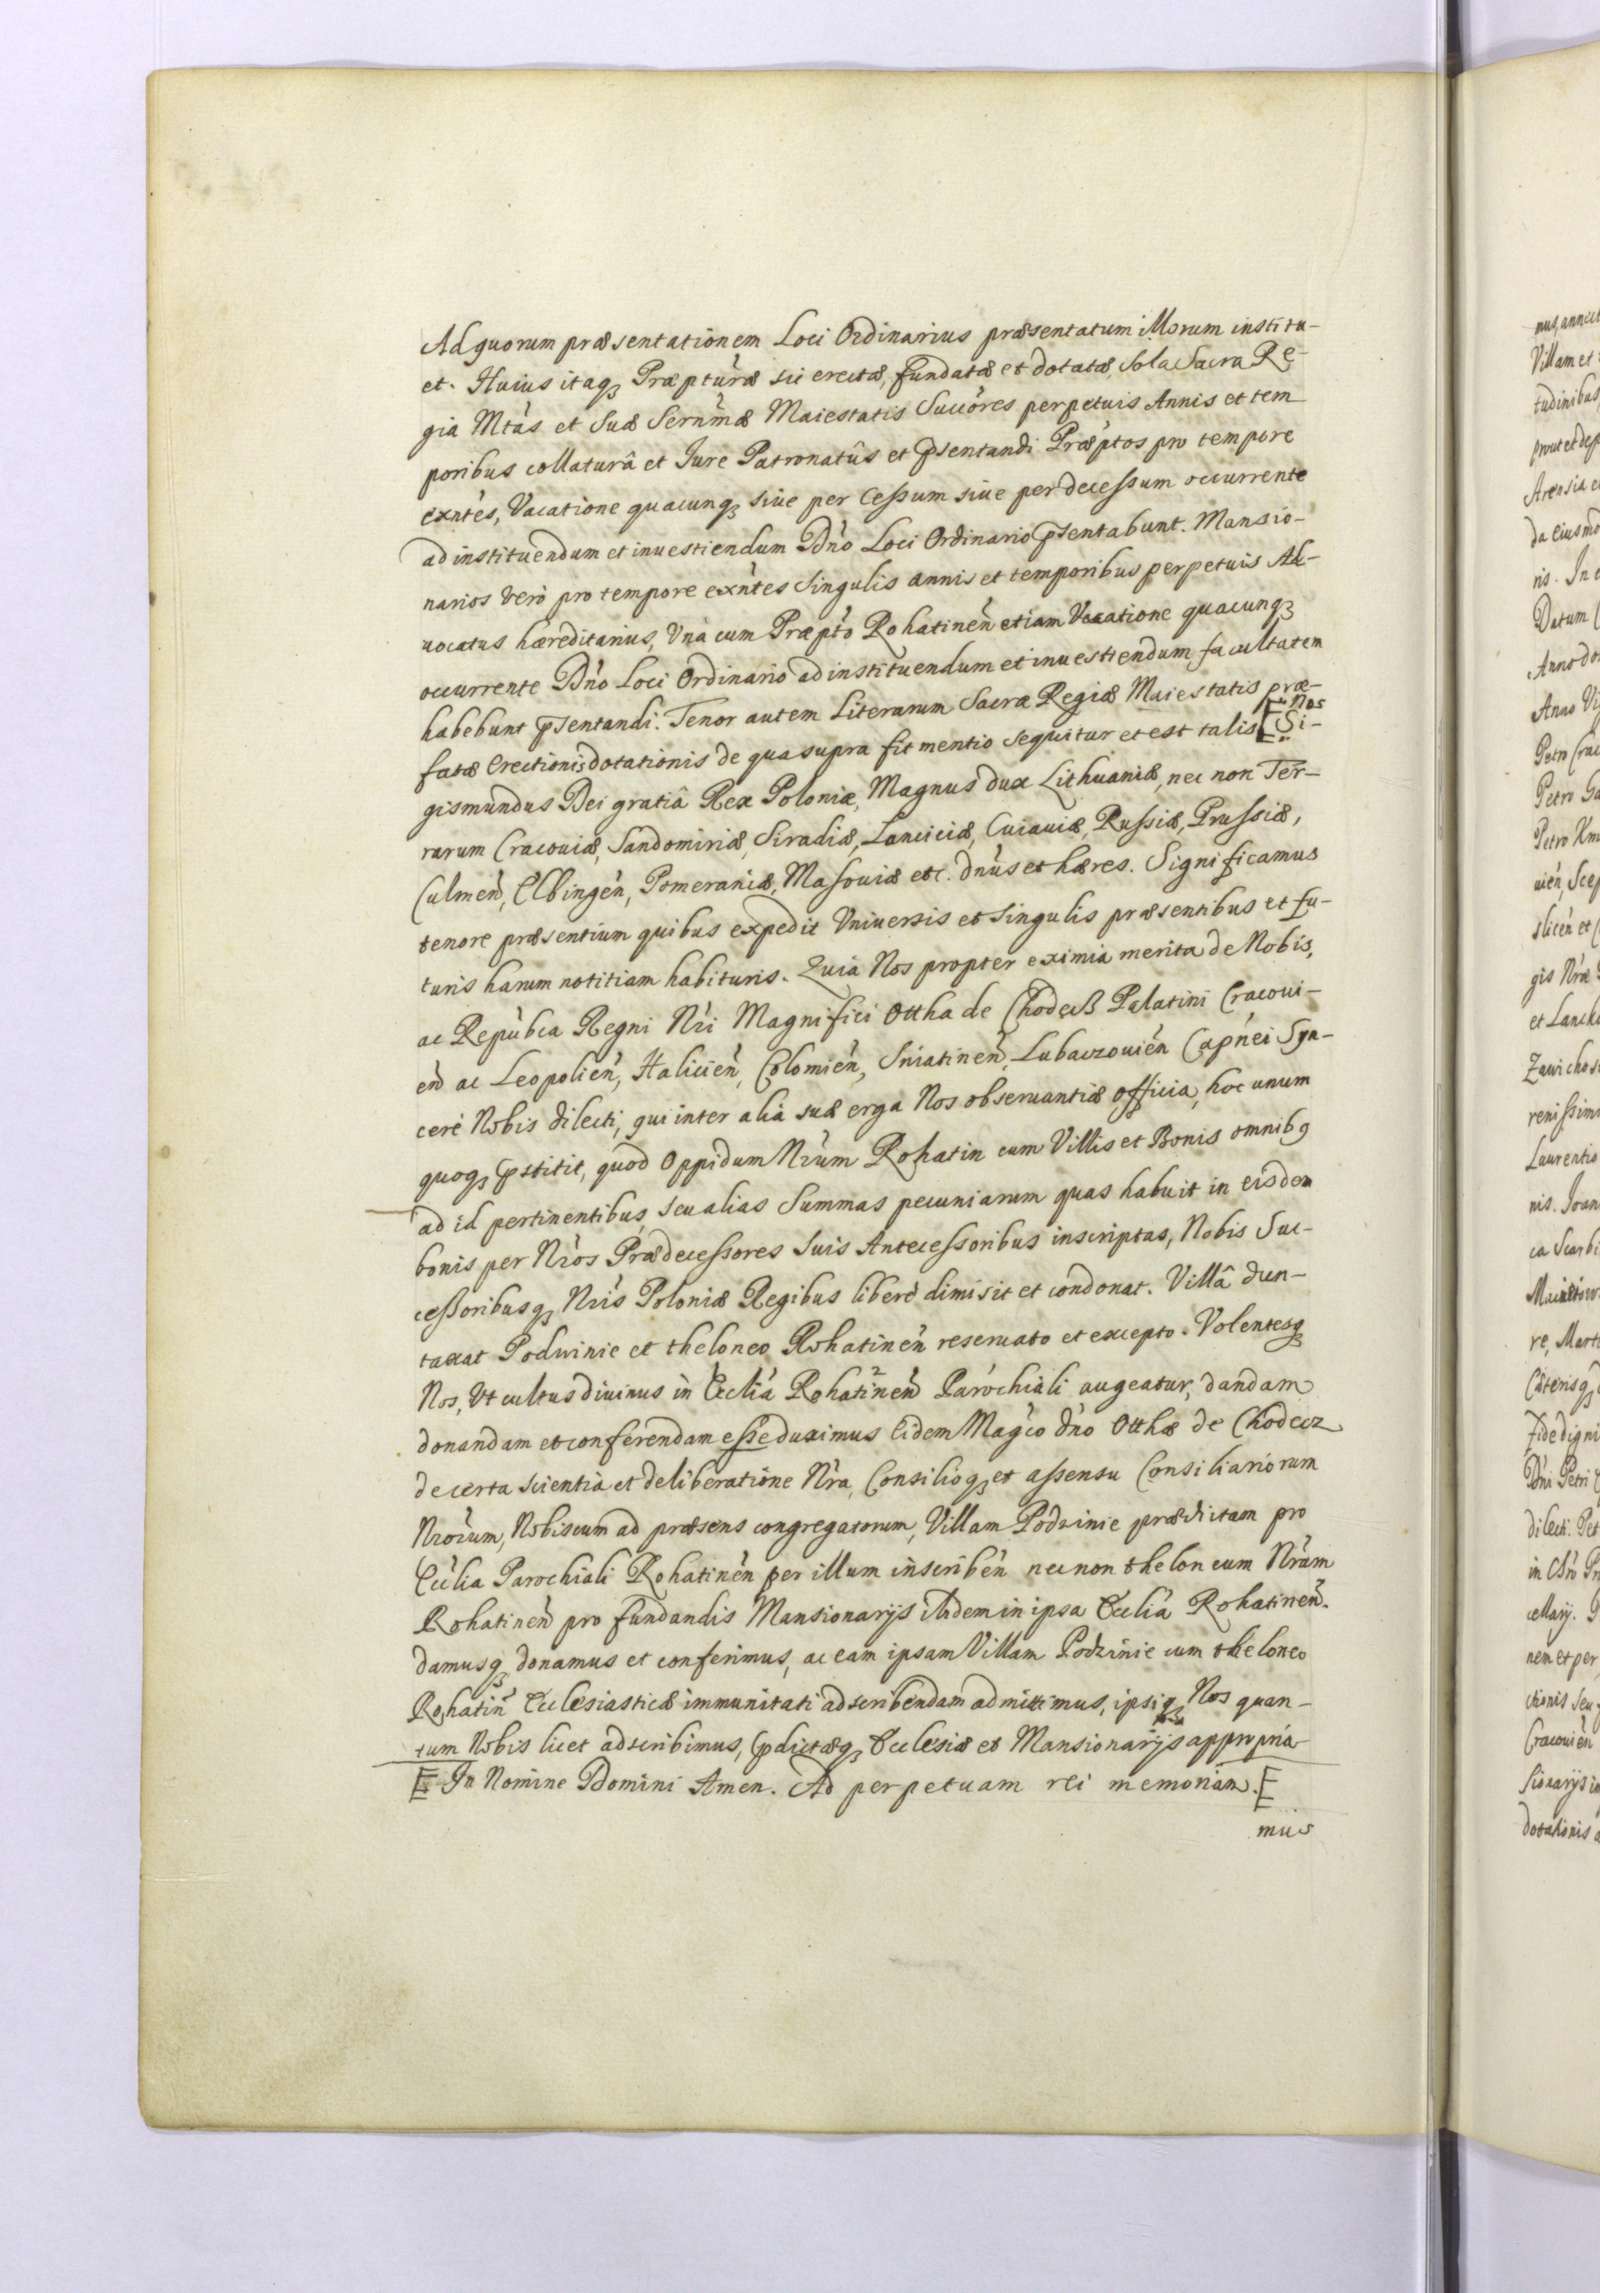 Ad quorum præsentationem Loci Ordinarius præsentatum illorum institu-
et. Huius itaq₃ Præpturæ sic erectæ, fundatæ et dotatæ, sola Sacra Re-
gia Mtàs et Suæ Sernmæ Maiestatis Succòres perpetuis Annis et tem
poribus collaturâ et Jure Patronatûs et p̄sentandi Præptos pro tempore
exntès, Vacatione quacunq₃ siue per Cessum siue per decessum occurrente
ad instituendum et inuestiendum Dno Loci Ordinario p̄sentabunt. Mansio-
narios verò pro tempore exntes singulis annis et temporibus perpetuis Ad-
uocatus hæreditarius, Vnà cum Præpto Rohatinen etiam Vacatione quacunq₃
occurrente Dno Loci Ordinario ad instituendum et inuestiendum facultatem
habebunt p̄sentandi. Tenor autem Literarum Sacræ Regiæ Maiestatis præ-
fatæ Erectionis dotationis de qua supra fit mentio sequitur et est talis [Nos Si-
gismundus Dei gratiâ Rex Poloniæ, Magnus dux Lithuaniæ, nec non Ter-
rarum Cracouiæ, Sandomiriæ, Siradiæ, Lanciciæ, Cuiauiæ, Russiæ, Prussiæ,
Culmen, Elbingen, Pomeraniæ, Masouiæ etc. dnus et hæres. Significamus
tenore præsentium quibus expedit Vniuersis et singulis præsentibus et fu-
turis harum notitiam habituris. Quia Nos propter eximia merita de Nobis,
ac Repubca Regni Nri Magnifici Ottha de Chodecß Palatini Cracoui-
en ac Leopolien, Halicien, Colomien, Sniatinen, Lubaczouien Capnei Syn-
cerè Nobis dilecti, qui inter alia suæ erga Nos obseruantiæ officia, hoc unum
quoq₃ p̄stitit, quod Oppidum Nrum Rohatin cum Villis et Bonis omnibꝰ
ad id pertinentibus, seu alias Summas pecuniarum quas habuit in eisdem
bonis per Nros Prædecessores suis Antecessoribus inscriptas, Nobis Suc-
cessoribusq₃ Nris Poloniæ Regibus liberè dimisit et condonat. Villâ dun-
taxat Podwinie et theloneo Rohatinen reseruato et excepto. Volentesq₃
Nos, Vt cultus diuinus in Ecclia Rohatinen Parochiali augeatur, dandam
donandam et conferendam esse duximus Eidem Magco dno Otthæ de Chodecz
de certa scientia et deliberatione Nra, Consilioq₃ et assensu Consiliariorum
Nrorum, Nobiscum ad præsens congregatorum, Villam Podzinie prædictam pro
Ecclia Parochiali Rohatinen per illum inscriben nec non theloneum Nrum
Rohatinen pro fundandis Mansionarijs ibidem in ipsa Ecclia Rohatinen.
damusq₃ donamus et conferimus, ac eam ipsam Villam Podzinie cum theloneo
Rohatin Ecclesiasticæ immunitati adscribendam admittimus, ipsiq₃ Nos quan-
tum Nobis licet adscribimus, p̄dictæq₃ Ecclesiæ et Mansionarijs appropria-
[In Nomine Domini Amen. Ad perpetuam rei memoriam.[
mus